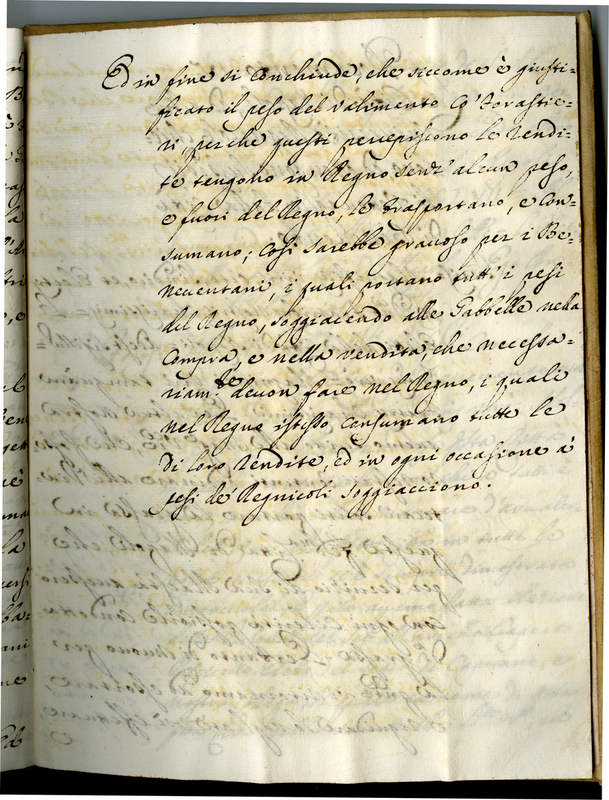 Ed in fine si conchiude, che siccome è giusti=
ficato il peso del valimento co' forastie=
ri, perche questi percepiscono le rendi=
te tengono in Regno senz' alcun peso,
e fuori del Regno, le trasportano, e con=
sumano; così sarebbe gravoso per i Be=
neventani, i quali portano tutti i pesi
del Regno, soggiacendo alle Gabbelle nella
compra, e nella vendita, che necessa=
riam.te devon fare nel Regno, i quali
nel Regno istesso consumano tutte le
di loro rendite, ed in ogni occasione a'
pesi de' Regnicoli soggiacciono.